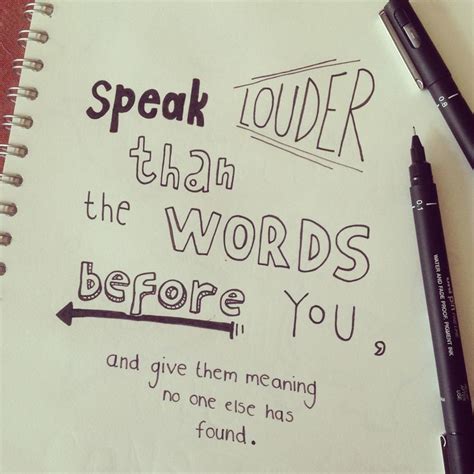 speak LOUDER
than
the WORDS
before YOU,
and give them meaning
no one else has
found.
0.8
0.1
uni pin
WATER AND FADE PROOF PIGMENT INK